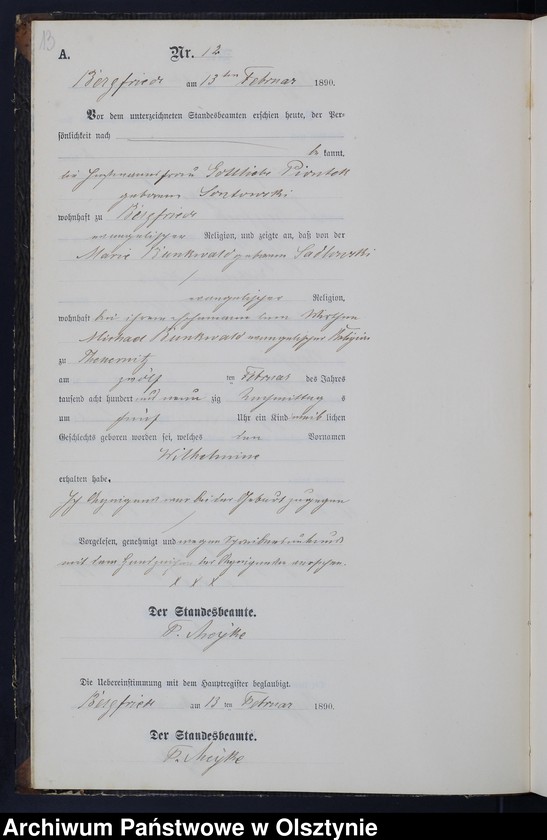 13
A. Nr. 12
Bergfriede am 13ten Februar 1890.
Vor dem unterzeichneten Standesbeamten erschien heute, der Per-
sönlichkeit nach
be kannt,
die Gottliebe Piontek
geborene
wohnhaft zu Bergfriede
evangelischer Religion, und zeigte an, daß von der
Marie Kunkwald geborene Sadlowski
evangelischer Religion,
wohnhaft bei ihrem Ehemanne dem
Michael Kunkwald evangelischer Religion
zu
am zwölf ten Februar des Jahres
tausend acht hundert und neun zig Nachmittag s
um fünf Uhr ein Kind weib lichen
Geschlechts geboren worden sei, welches den Vornamen
Wilhelmine
erhalten habe.
Die Anzeigende war bei der Geburt zugegen
Vorgelesen, genehmigt und wegen Schreibensunkunde
mit dem Handzeichen der Anzeigenden versehen.
x x x
Der Standesbeamte.
Die Uebereinstimmung mit dem Hauptregister beglaubigt.
Bergfriede am 13 ten Februar 1890.
Der Standesbeamte.
Archiwum Państwowe w Olsztynie